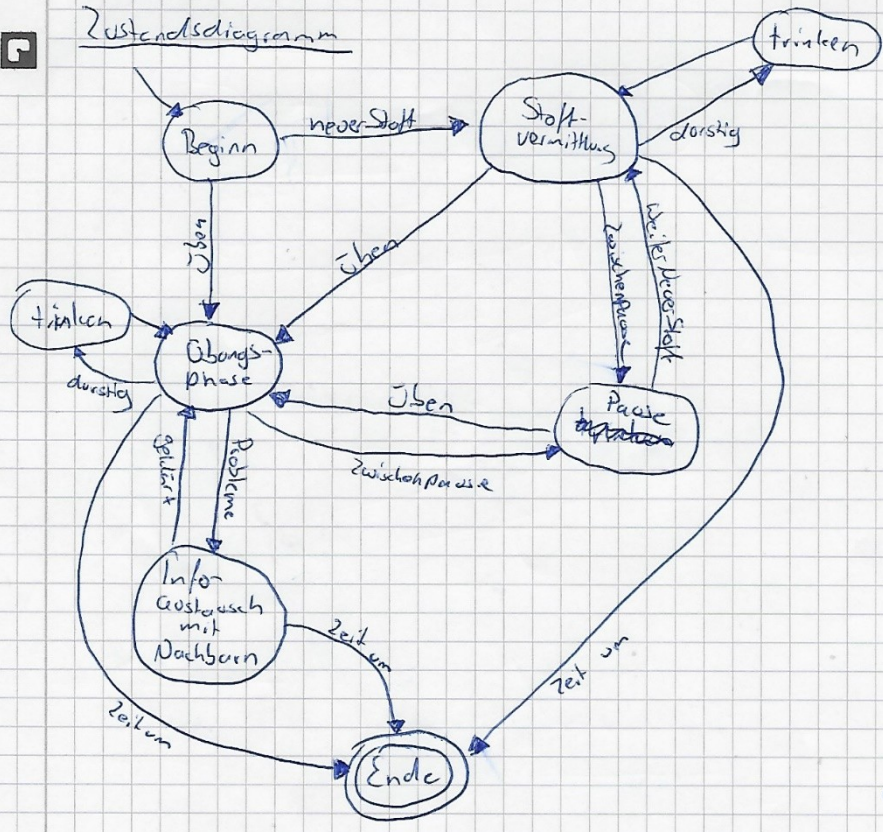 Zustandsdiagramm
trinken
Beginn
neuer Stoff
Stoff-
vermittlung
durstig
Üben
Üben
Zwischenpause
Weiter Neuer Stoff
trinken
durstig
Übungs-
phase
Üben
Pause
Zwischenpause
geklärt
Probleme
Info-
austausch
mit
Nachbarn
Zeit um
Zeit um
Zeit um
Ende